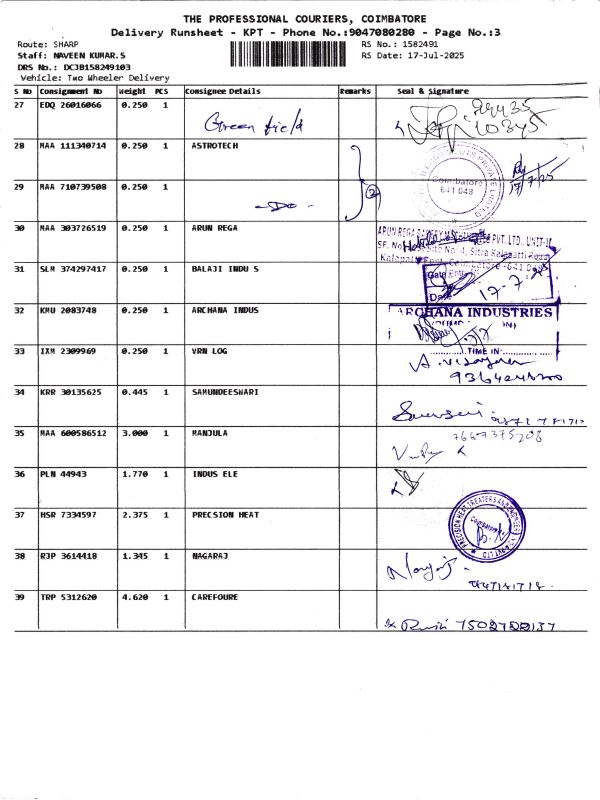 THE PROFESSIONAL COURIERS, COIMBATORE
Delivery Runsheet - KPT - Phone No.:9047080280 - Page No.:3
Route: SHARP
RS No.: 1582491
Staff: NAVEEN KUMAR.S
RS Date: 17-Jul-2025
DRS No.: DC3B158249103
Vehicle: Two Wheeler Delivery
S NO Consignment No Weight PCS Consignee Details Remarks Seal & Signature
27 EDQ 26016066 0.250 1
Green field
28 MAA 111340714 0.250 1 ASTROTECH
Coimbatore
641 048
17/7/25
29 MAA 710739508 0.250 1
-Do-
2
30 MAA 303726519 0.250 1 ARUN REGA
PVT. LTD., UNIT-II
SF. No
Sitra Kalapatti Road
Kalapatti Post, Coimbatore - 641 048
31 SLM 374297417 0.250 1 BALAJI INDU S
Gate Entry
Date
17-7-25
32 KMU 2083748 0.250 1 ARCHANA INDUS
ARCHANA INDUSTRIES
33 IXM 2309969 0.250 1 VRN LOG
TIME IN
34 KRR 30135625 0.445 1 SAMUNDEESWARI
35 MAA 600586512 3.000 1 MANJULA
7667375208
36 PLN 44943 1.770 1 INDUS ELE
37 HSR 7334597 2.375 1 PRECSION HEAT
PRECISION HEAT TREATERS AND ENGINEERS PVT LTD
Coimbatore
38 RJP 3614418 1.345 1 NAGARAJ
39 TRP 5312620 4.620 1 CAREFOURE